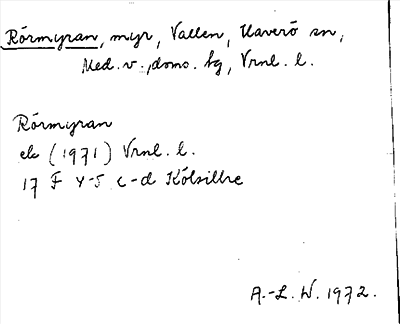 Rörmyran, myr, Vallen, Haverö sn,
Med. v. , doms. hg, Vrnl. l.
Rörmyran
ek (1971) Vrnl. l.
17 F 4-5 c-d Kölsillre
A.-L. W. 1972.